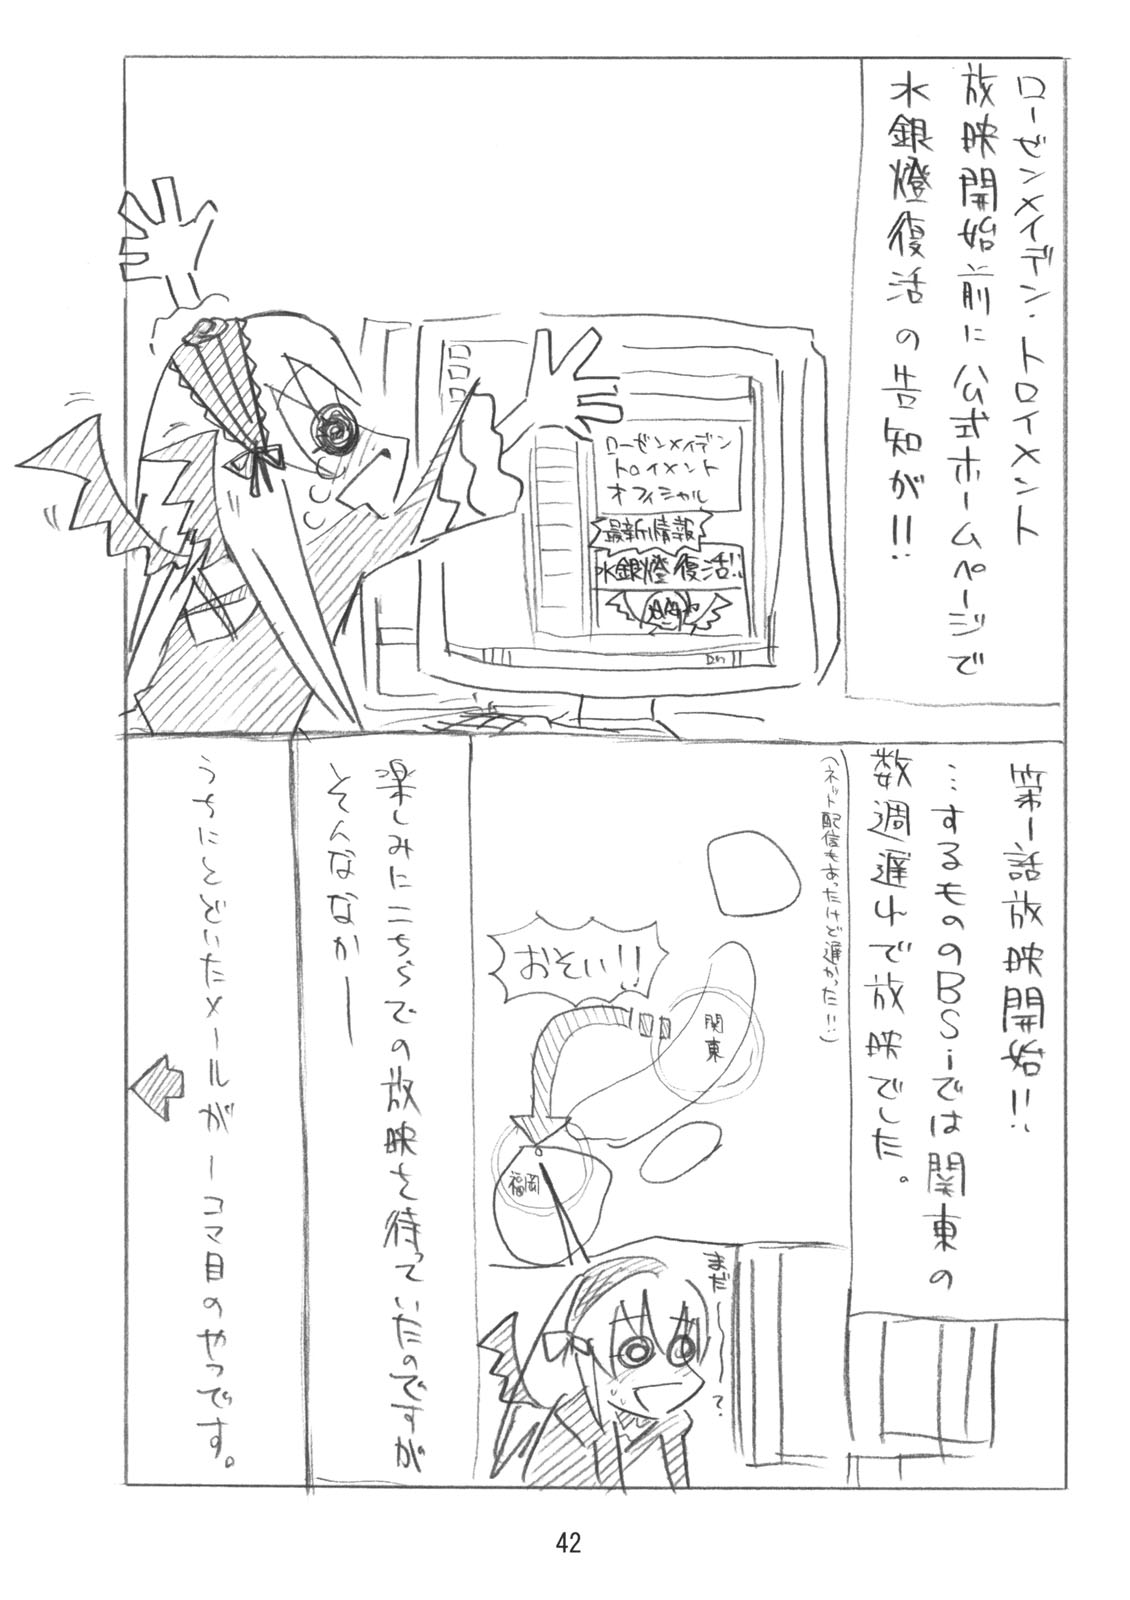 ローゼンメイデン・トロイメント
放映開始前に公式ホームページで
水銀燈復活の告知が!!
ローゼンメイデン
トロイメント
オフィシャル
最新情報
水銀燈復活!!
第一話放映開始!!
…するもののBSiでは関東の
数週遅れで放映でした。
(ネット配信もあったけど遅かった!!)
関東
おそい!!
福岡
まだ〜〜?
楽しみにこちらでの放映を待っていたのですが
そんななかー
うちにとどいたメールが一コマ目のやつです。
42